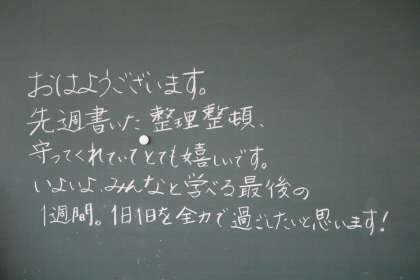 おはようございます。
先週書いた整理整頓、
守ってくれていてとても嬉しいです。
いよいよ、みんなと学べる最後の
1週間。1日1日を全力で過ごしたいと思います!